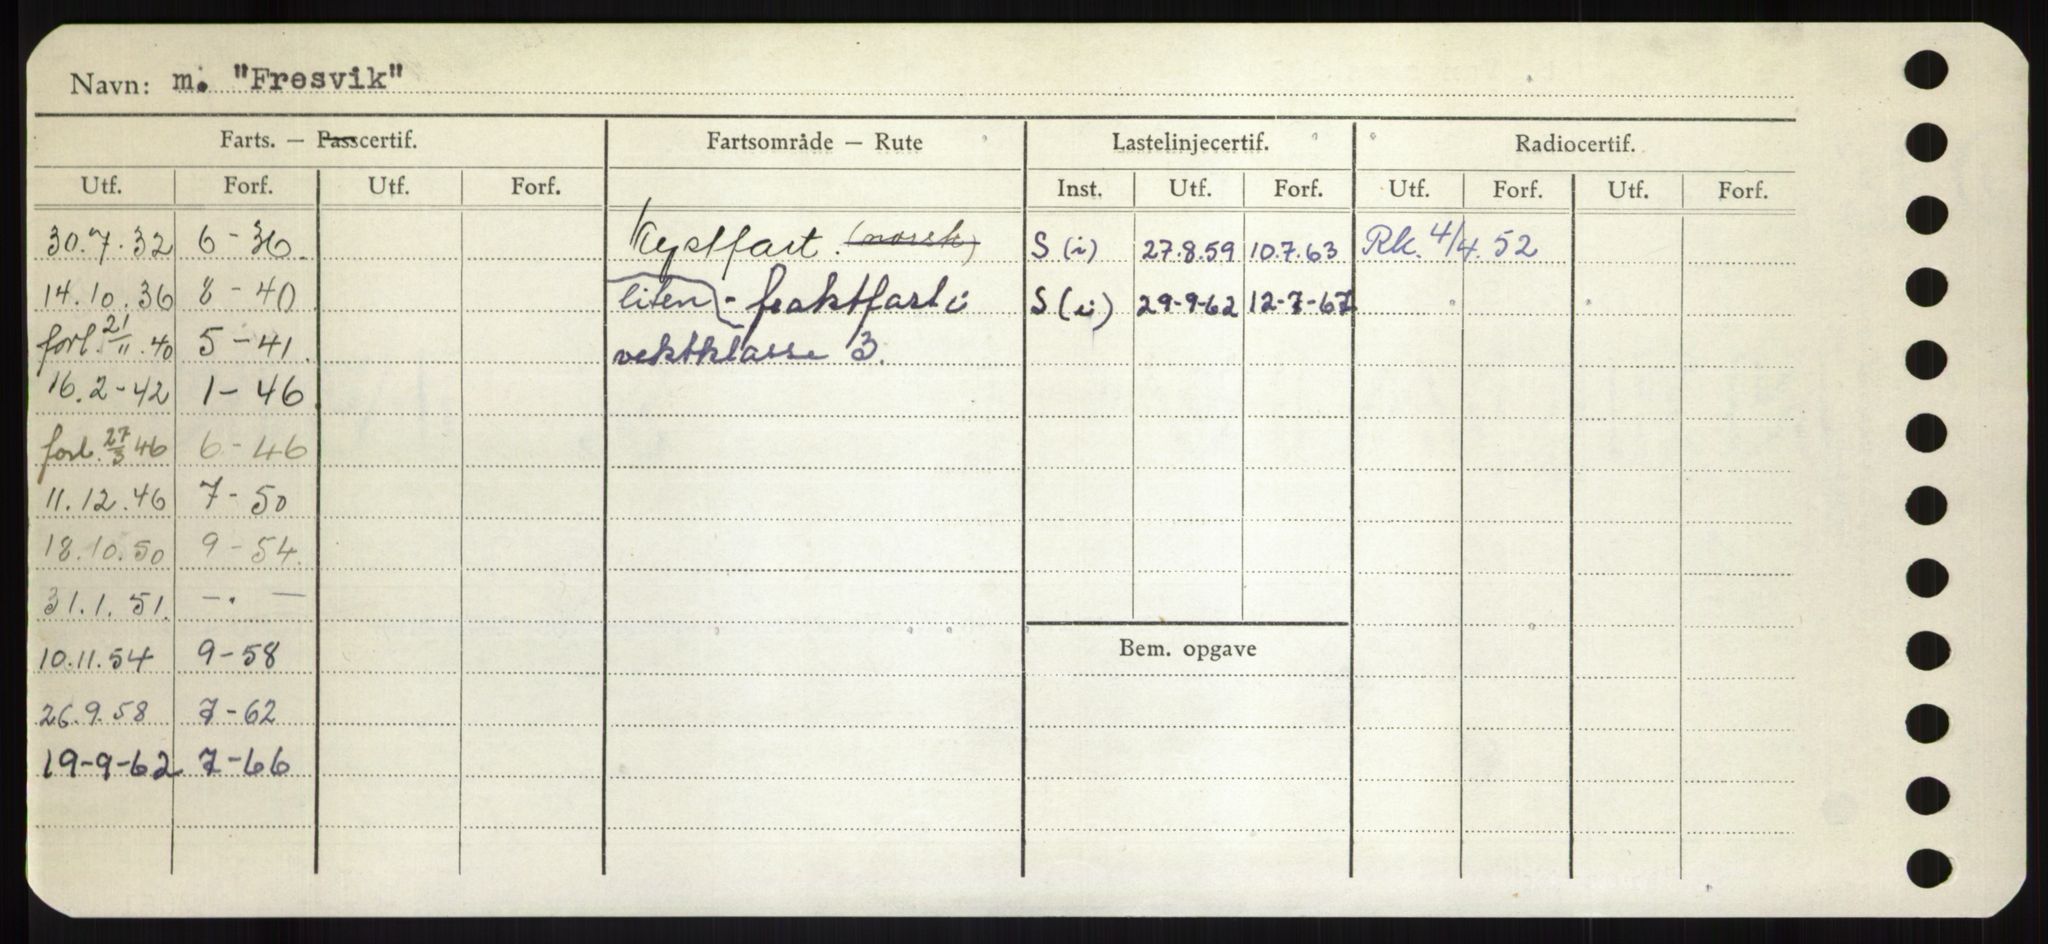 Navn: m. "Fresvik"
Farts. — Passcertif. Fartsområde — Rute Lastelinjecertif. Radiocertif.
Utf. Forf. Utf. Forf. Inst. Utf. Forf. Utf. Forf. Utf. Forf.
30.7.32 6-36. Kystfart. (norsk) S (i) 27.8.59 10.7.63 Rk. 4/4.52
14.10.36 8-40 liten - fraktfart i S (i) 29-9-62 12-7-67
forl. 21/11.40 5-41. vektklasse 3.
16.2-42 1-46
forl. 27/3 46 6-46
11.12.46 7-50
18.10.50 9-54.
31.1.51. -.-
10.11.54 9-58 Bem. opgave
26.9.58 7-62
19-9-62 7-66